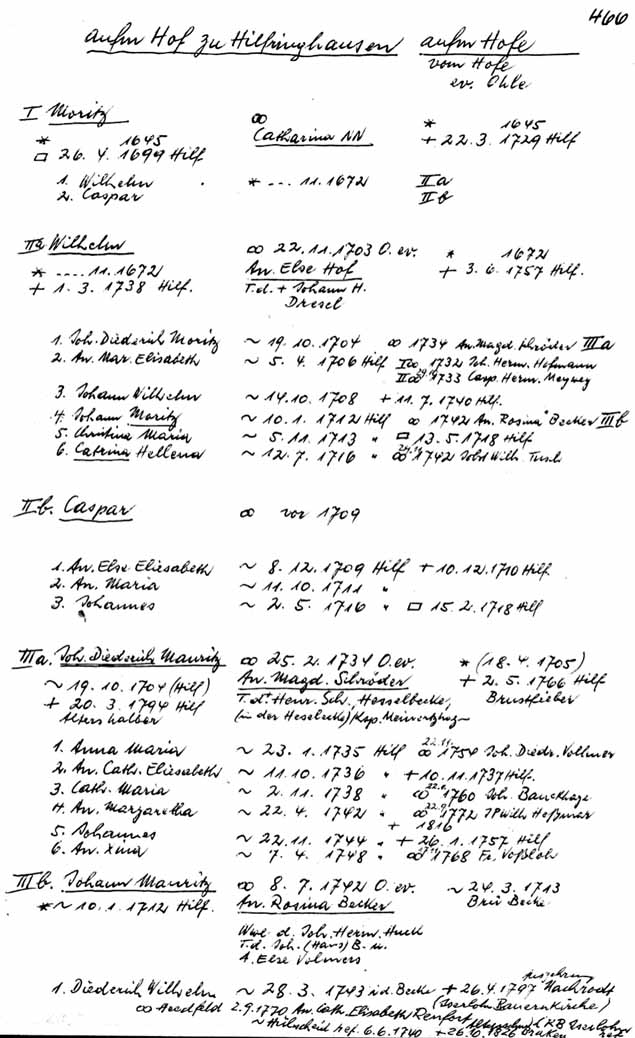 466
aufm Hof zu Hilfringhausen aufm Hofe
vom Hofe
ev. Ohle
I Moritz ∞ * 1645
* 1645 Catharina NN + 22.3.1729 Hilf
□ 26.4.1699 Hilf
1. Wilhelm * ... 11.1672 IIa
2. Caspar IIb
IIa Wilhelm ∞ 22.11.1703 O.ev. * 1672
* .... 11.1672 An. Else Hof + 3.6.1757 Hilf.
+ 1.3.1738 Hilf. T.d. + Johann H.
Dresel
1. Joh. Diederich Moritz ~ 19.10.1704 ∞ 1734 An. Magd. Schröder IIIa
2. An. Mar. Elisabeth ~ 5.4.1706 Hilf I∞ 1732 Joh. Herm. Hofmann
II∞ 1733 Casp. Herm. Meyweg
3. Johann Wilhelm ~ 14.10.1708 + 11.7.1740 Hilf.
4. Johann Moritz ~ 10.1.1712 Hilf ∞ 1742 An. Rosina Becker IIIb
5. Christina Maria ~ 5.11.1713 " □ 13.5.1718 Hilf
6. Catrina Hellena ~ 12.7.1716 " ∞ 1742 Wilh. Tusch
IIb. Caspar ∞ vor 1709
1. An. Else Eliesabeth ~ 8.12.1709 Hilf + 10.12.1710 Hilf.
2. An. Maria ~ 11.10.1711 "
3. Johannes ~ 2.5.1716 " □ 15.2.1718 Hilf
IIIa. Joh. Diederich Mauritz ∞ 25.2.1734 O.ev. * (18.4.1705)
~ 19.10.1704 (Hilf) An. Magd. Schröder + 2.5.1766 Hilf
+ 20.3.1794 Hilf T.d. + Henr. Sch., Hesselbecke, Brustfieber
Altershalber (in der Heselbecke) Ksp. Meinertzhagen
1. Anna Maria ~ 23.1.1735 Hilf ∞ 1754 Joh. Diedr. Vollmer
2. An. Cath. Eliesabeth ~ 11.10.1736 " + 10.11.1737 Hilf.
3. Cath. Maria ~ 2.11.1738 " ∞ 1760 Joh. Banckhage
4. An. Margaretha ~ 22.4.1742 " ∞ 1772 JP Wilh.
+ 1816
5. Johannes ~ 22.11.1744 " + 26.1.1757 Hilf
6. An. Xina ~ 7.4.1748 " ∞ 1768 Fr. Voßloh
IIIb. Johann Mauritz ∞ 8.7.1742 O.ev. ~ 24.3.1713
* ~ 10.1.1712 Hilf. An. Rosina Becker
Wwe d. Joh. Herm. Huck
T.d. Joh. (Hans) B. u.
A. Else Volmers
1. Diederich Wilhelm ~ 28.3.1743 i.d. Becke + 26.4.1797 Nachrodt
(Iserlohn Bauernkirche)
∞ 2.9.1770 An. Cath. Elisabeth Renfort
~ Hülscheid ref. 6.6.1740 + 26.10.1826